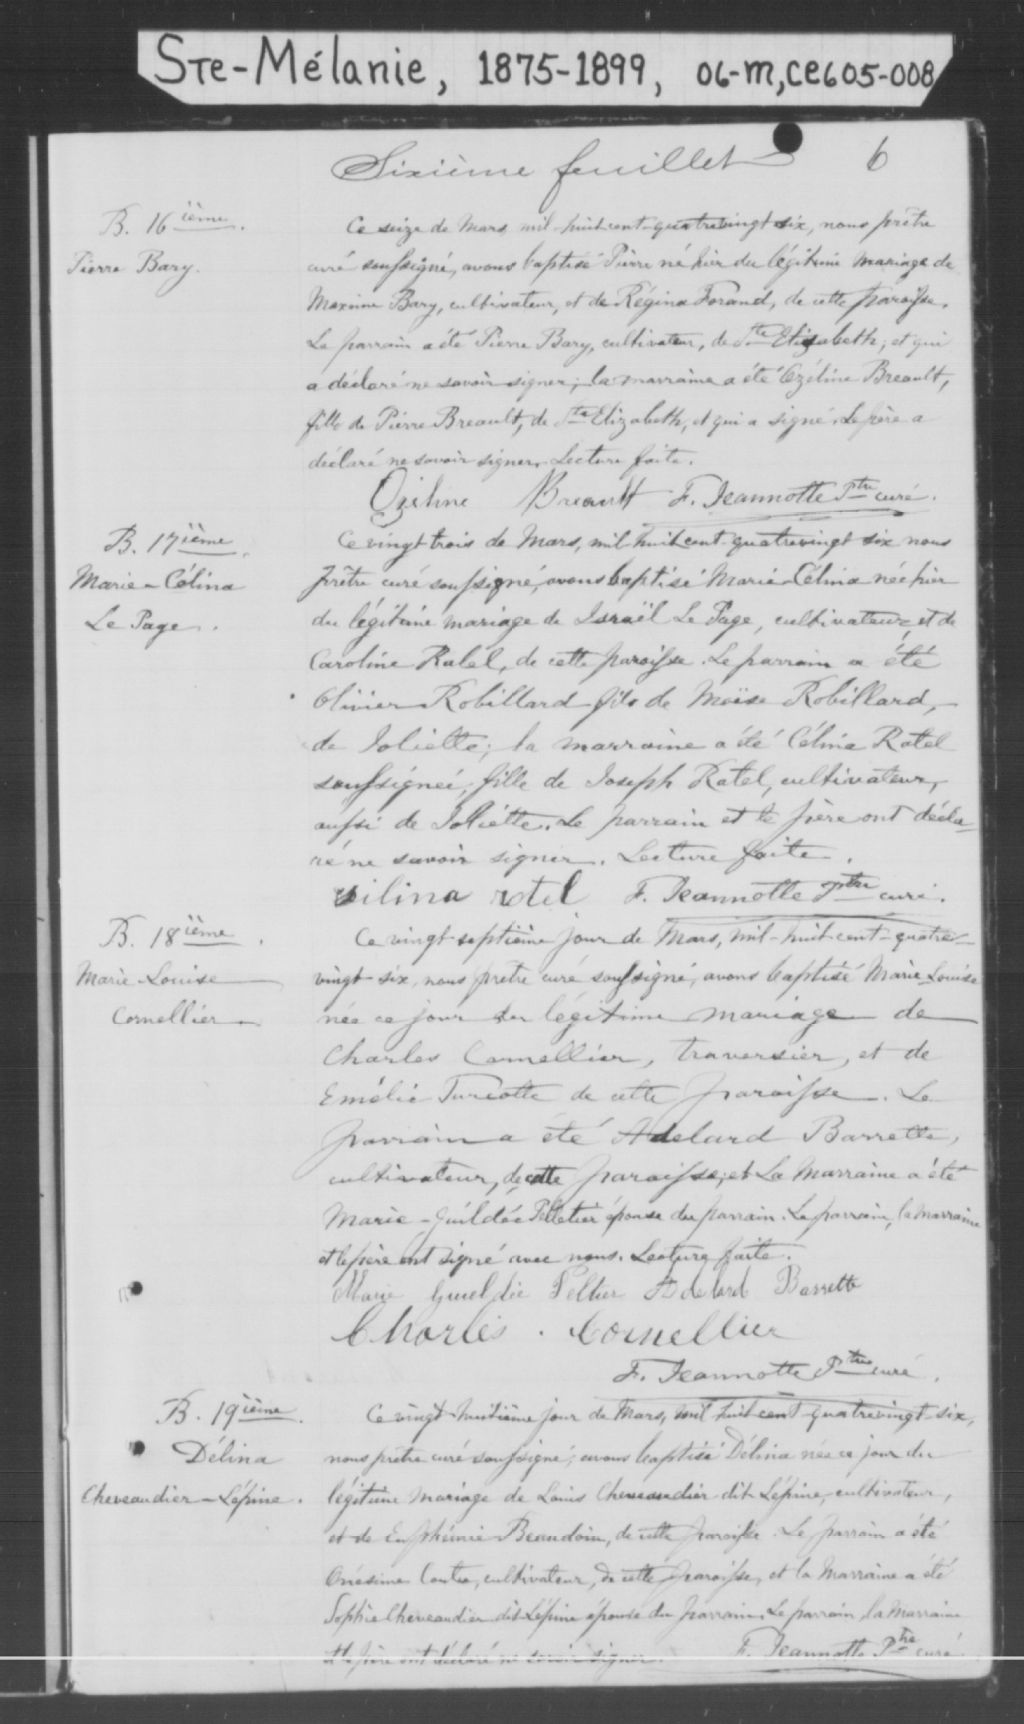 Ste-Mélanie, 1875-1899, 06-M, CE605-008
Sixième feuillet 6
B. 16ième.
Pierre Bary.
Ce seize de Mars mil-huit cent-quatrevingt six, nous prêtre
curé soussigné, avons baptisé Pierre né hier du légitime mariage de
Maxime Bary, cultivateur, et de Régina Forand, de cette paroisse.
Le parrain a été Pierre Bary, cultivateur, de Ste Elizabeth, et qui
a déclaré ne savoir signer; la marraine a été Ozéline Breault,
fille de Pierre Breault, de Ste Elizabeth, et qui a signé. Le père a
déclaré ne savoir signer. Lecture faite.
Oziline Breault F. Jeannotte Ptre curé.
B. 17ième.
Marie-Célina
Le Page.
Ce vingt trois de Mars, mil huit cent quatrevingt six nous
prêtre curé soussigné, avons baptisé Marie-Célina née hier
du légitime mariage de Israël Le Page, cultivateur et de
Caroline Ratel, de cette paroisse. Le parrain a été
Olivier Robillard fils de Moïse Robillard,
de Joliette; la marraine a été Célina Ratel
soussignée, fille de Joseph Ratel, cultivateur,
aussi de Joliette. Le parrain et le père ont décla-
ré ne savoir signer. Lecture faite.
silina rotel F. Jeannotte Ptre curé.
B. 18ième.
Marie-Louise
Cornellier
Ce vingt-septième jour de Mars, mil-huit cent-quatre-
vingt-six, nous prêtre curé soussigné, avons baptisé Marie-Louise
née ce jour du légitime mariage de
Charles Cornellier, traversier, et de
Emélie Turcotte de cette paroisse. Le
parrain a été Adelard Barrette,
cultivateur, de cette paroisse, et La Marraine a été
Marie-Guildée Pelletier épouse du parrain. Le parrain, la marraine
et le père ont signé avec nous. Lecture faite.
Marie Gueldie Peltier Adelard Barrette
Charles. Cornellier
F. Jeannotte Ptre curé.
B. 19ième.
Délina
Cheveaudier-Lépine.
Ce vingt-huitième jour de Mars, mil huit cent-quatrevingt-six,
nous prêtre curé soussigné, avons baptisé Délina née ce jour du
légitime mariage de Louis Cheveaudier dit Lépine, cultivateur,
et de Euphémie Beaudoin, de cette paroisse. Le parrain a été
Onésime Coutu, cultivateur, de cette paroisse, et la Marraine a été
Sophie Cheveaudier dit Lépine épouse du parrain. Le parrain, la Marraine
et le père ont déclaré ne savoir signer. F. Jeannotte Ptre curé.